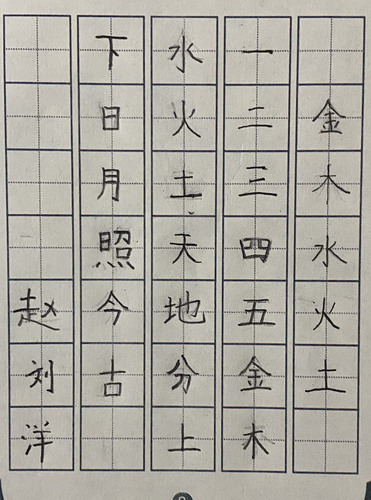 金木水火土
一二三四五金木
水火土天地分上
下日月照今古
赵刘洋